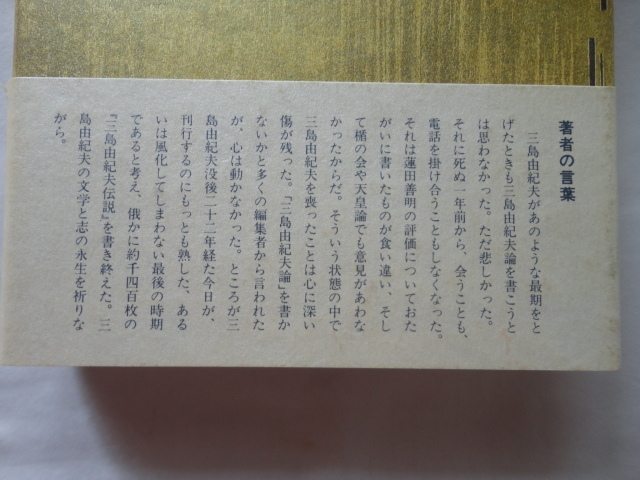 著者の言葉
三島由紀夫があのような最期をと
げたときも三島由紀夫論を書こうと
は思わなかった。ただ悲しかった。
それに死ぬ一年前から、会うことも、
電話を掛け合うこともしなくなった。
それは蓮田善明の評価についておた
がいに書いたものが食い違い、そし
て楯の会や天皇論でも意見があわな
かったからだ。そういう状態の中で
三島由紀夫を喪ったことは心に深い
傷が残った。「三島由紀夫論」を書か
ないかと多くの編集者から言われた
が、心は動かなかった。ところが三
島由紀夫没後二十二年経た今日が、
刊行するのにもっとも熟した、ある
いは風化してしまわない最後の時期
であると考え、俄かに約千四百枚の
『三島由紀夫伝説』を書き終えた。三
島由紀夫の文学と志の永生を祈りな
がら。